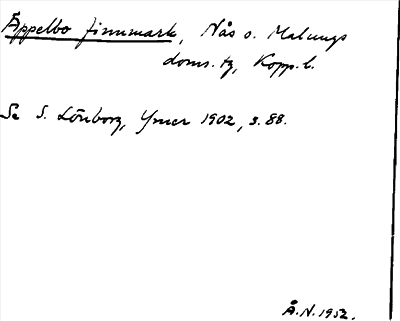 Äppelbo finnmark, Nås o. Malungs
doms. tg, Kopp. l.
Se S. Lönborg, Ymer 1902, s. 88.
Å. N. 1952.